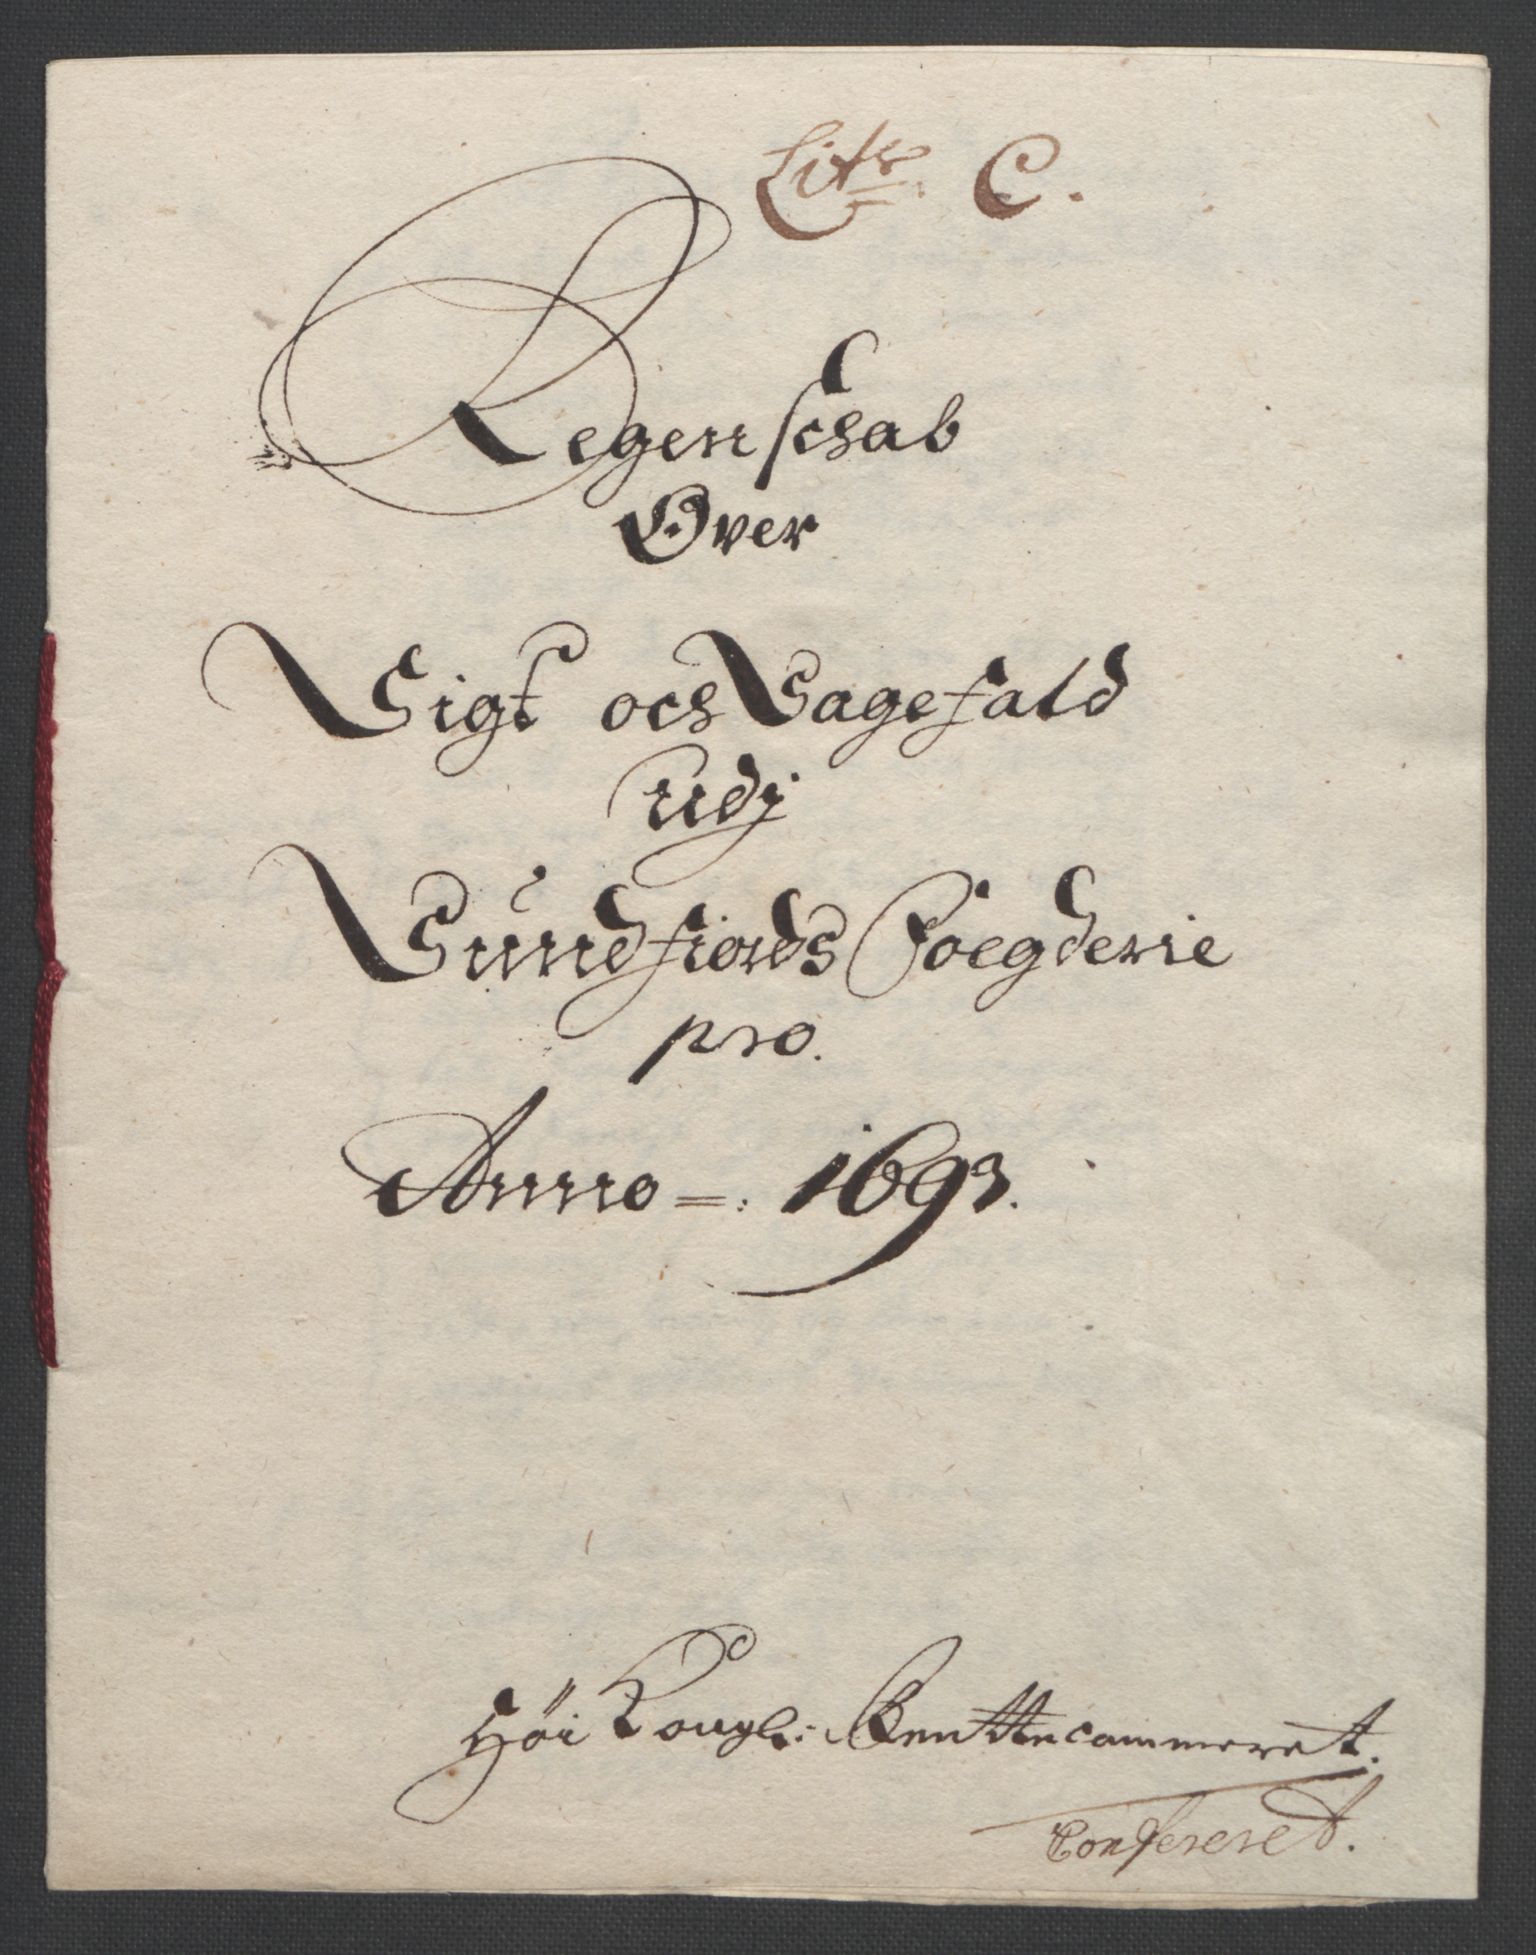 Litr. C.
Regenschab
Over
Sigt och Sagefald
udj
Sundfiords Foegderie
pro.
Anno =: 1693.
Höi Kongl: Renttecammeret.
Confereret.